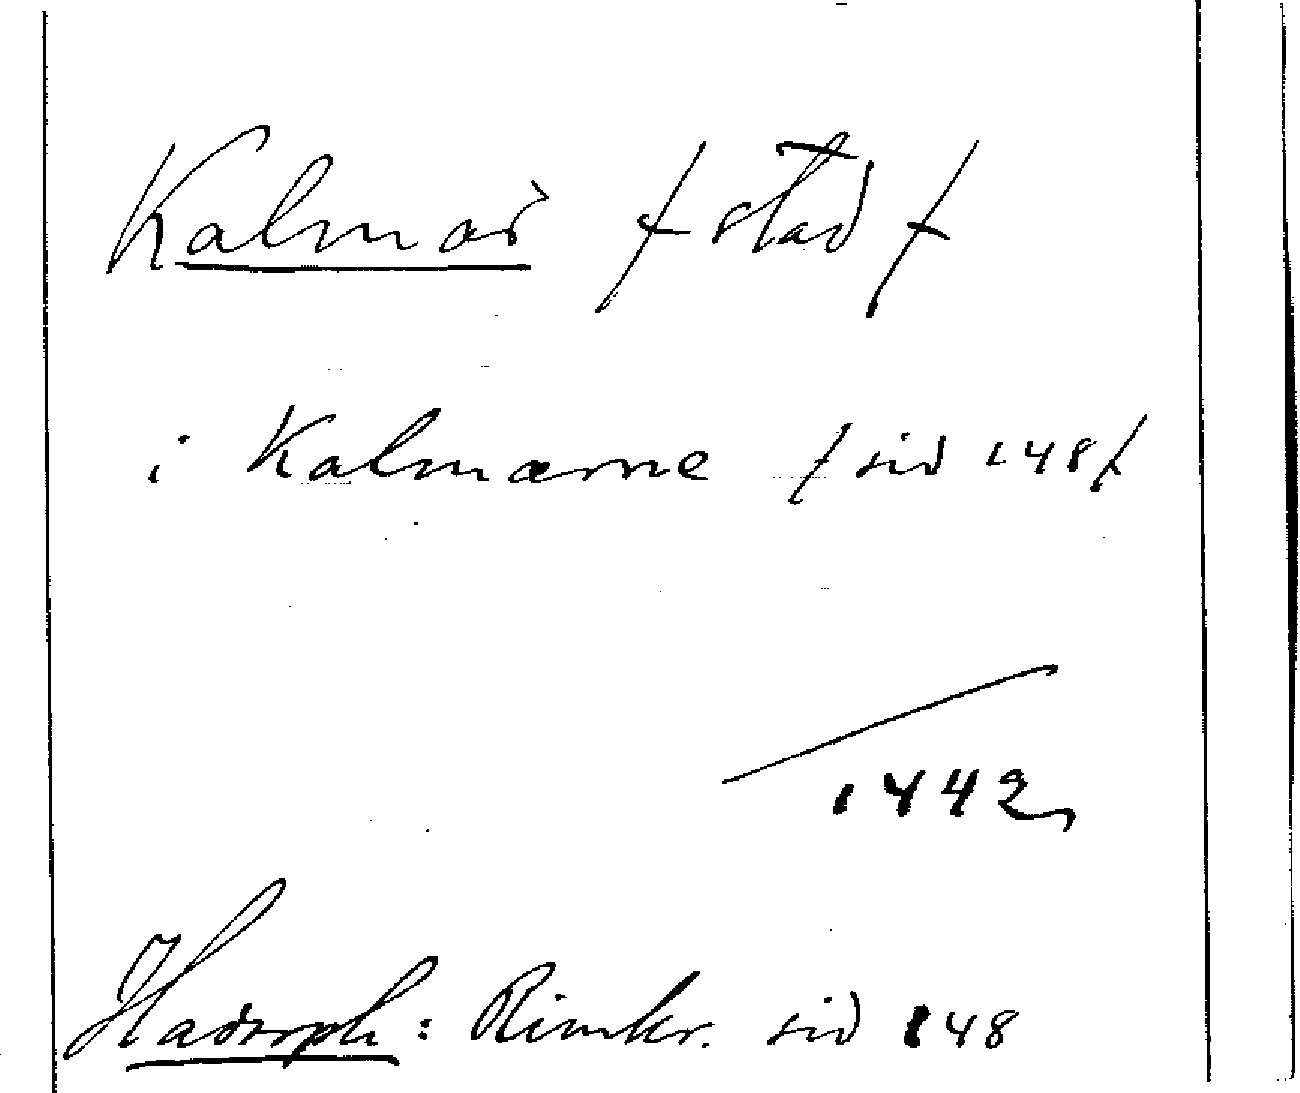 Kalmar / stad /
i Kalmarne / sid 148 /
1442
Hadorph: Rimkr. sid 148